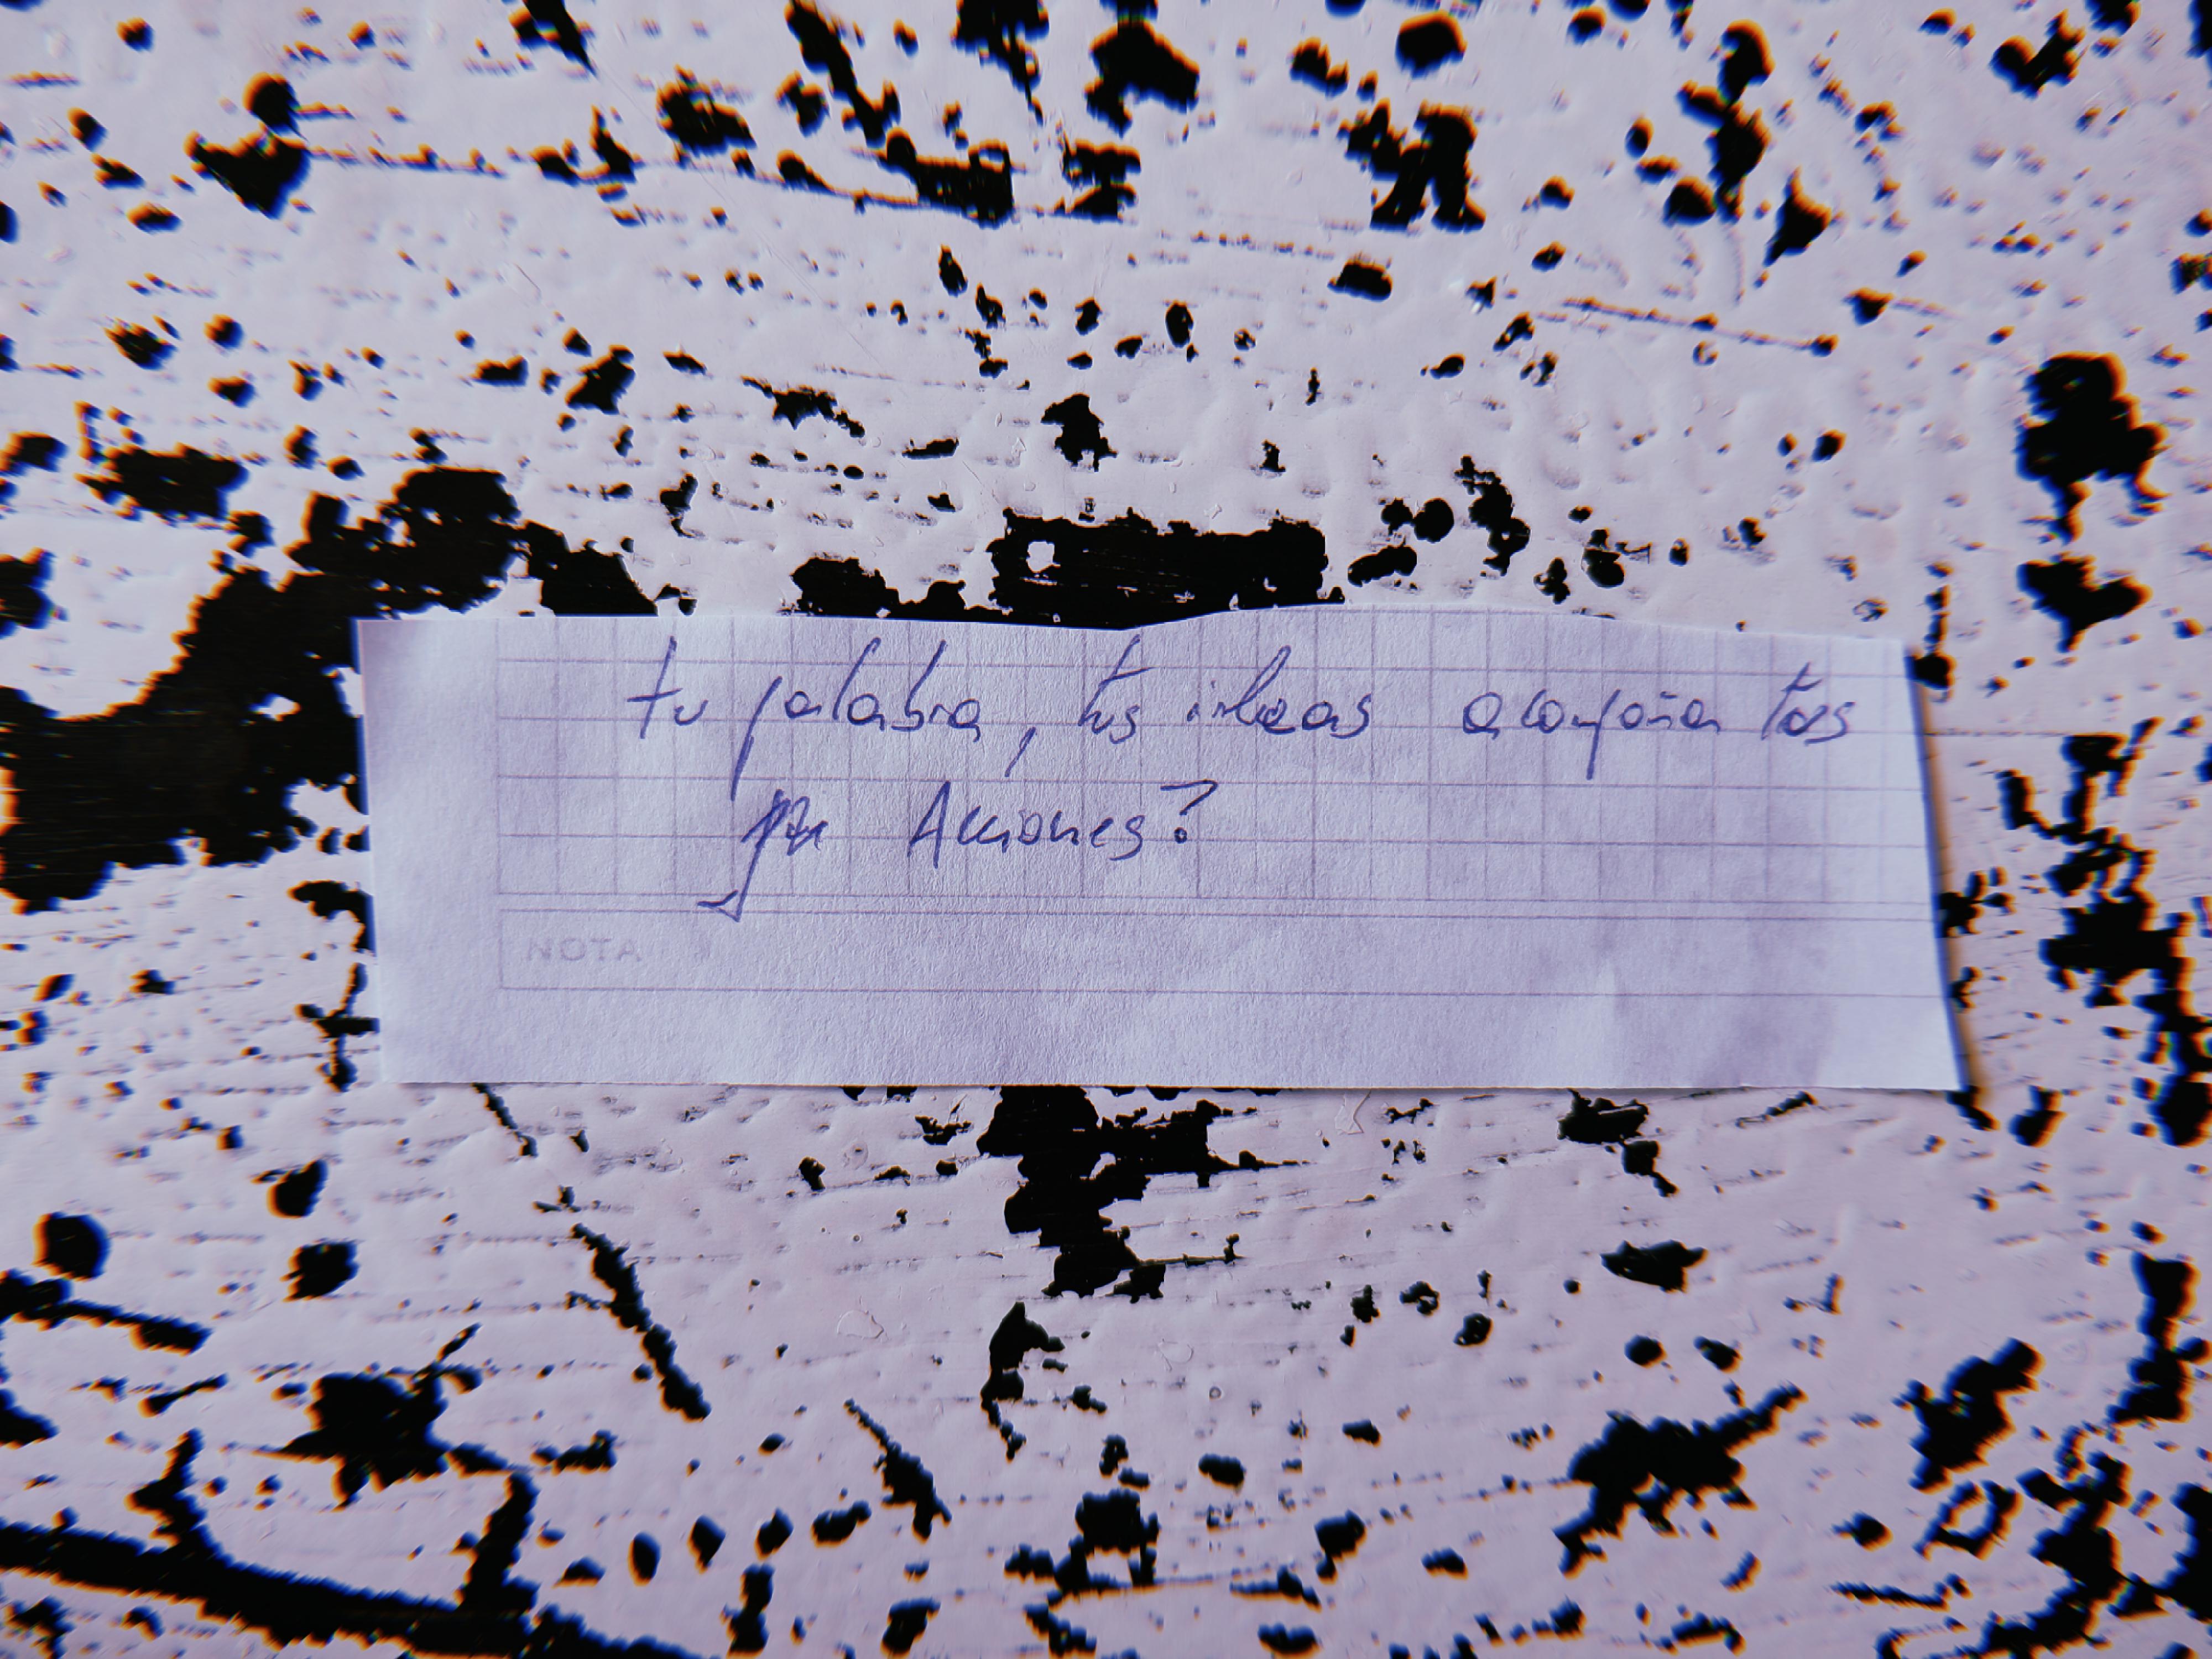 tu palabra, tus ideas acompaña tus
Acciones?
NOTA